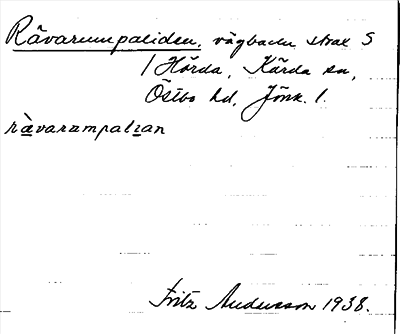 Rävarumpaliden, vägbacke strax S
/ Hörda, Kärda sn,
Östbo hd, Jönk. l.
rävarumpalian
Fritz Andersson 1938.